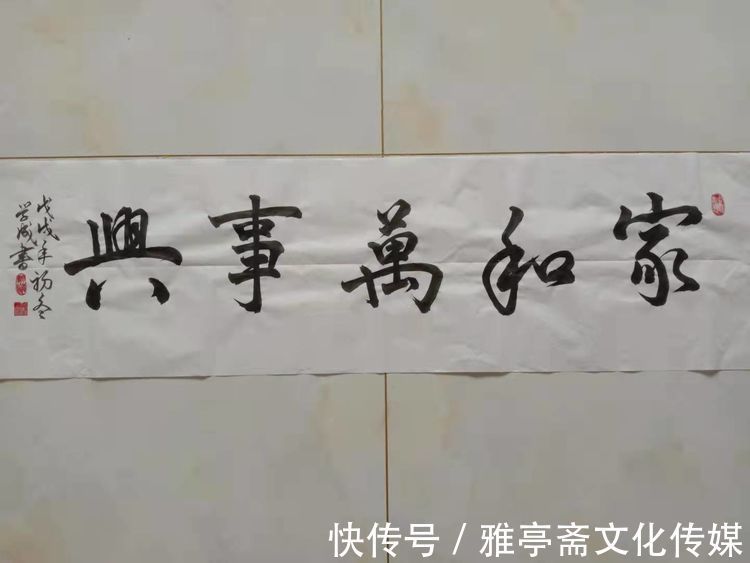 家和萬事興
戊戌年初冬
書
快传号 / 雅亭斋文化传媒